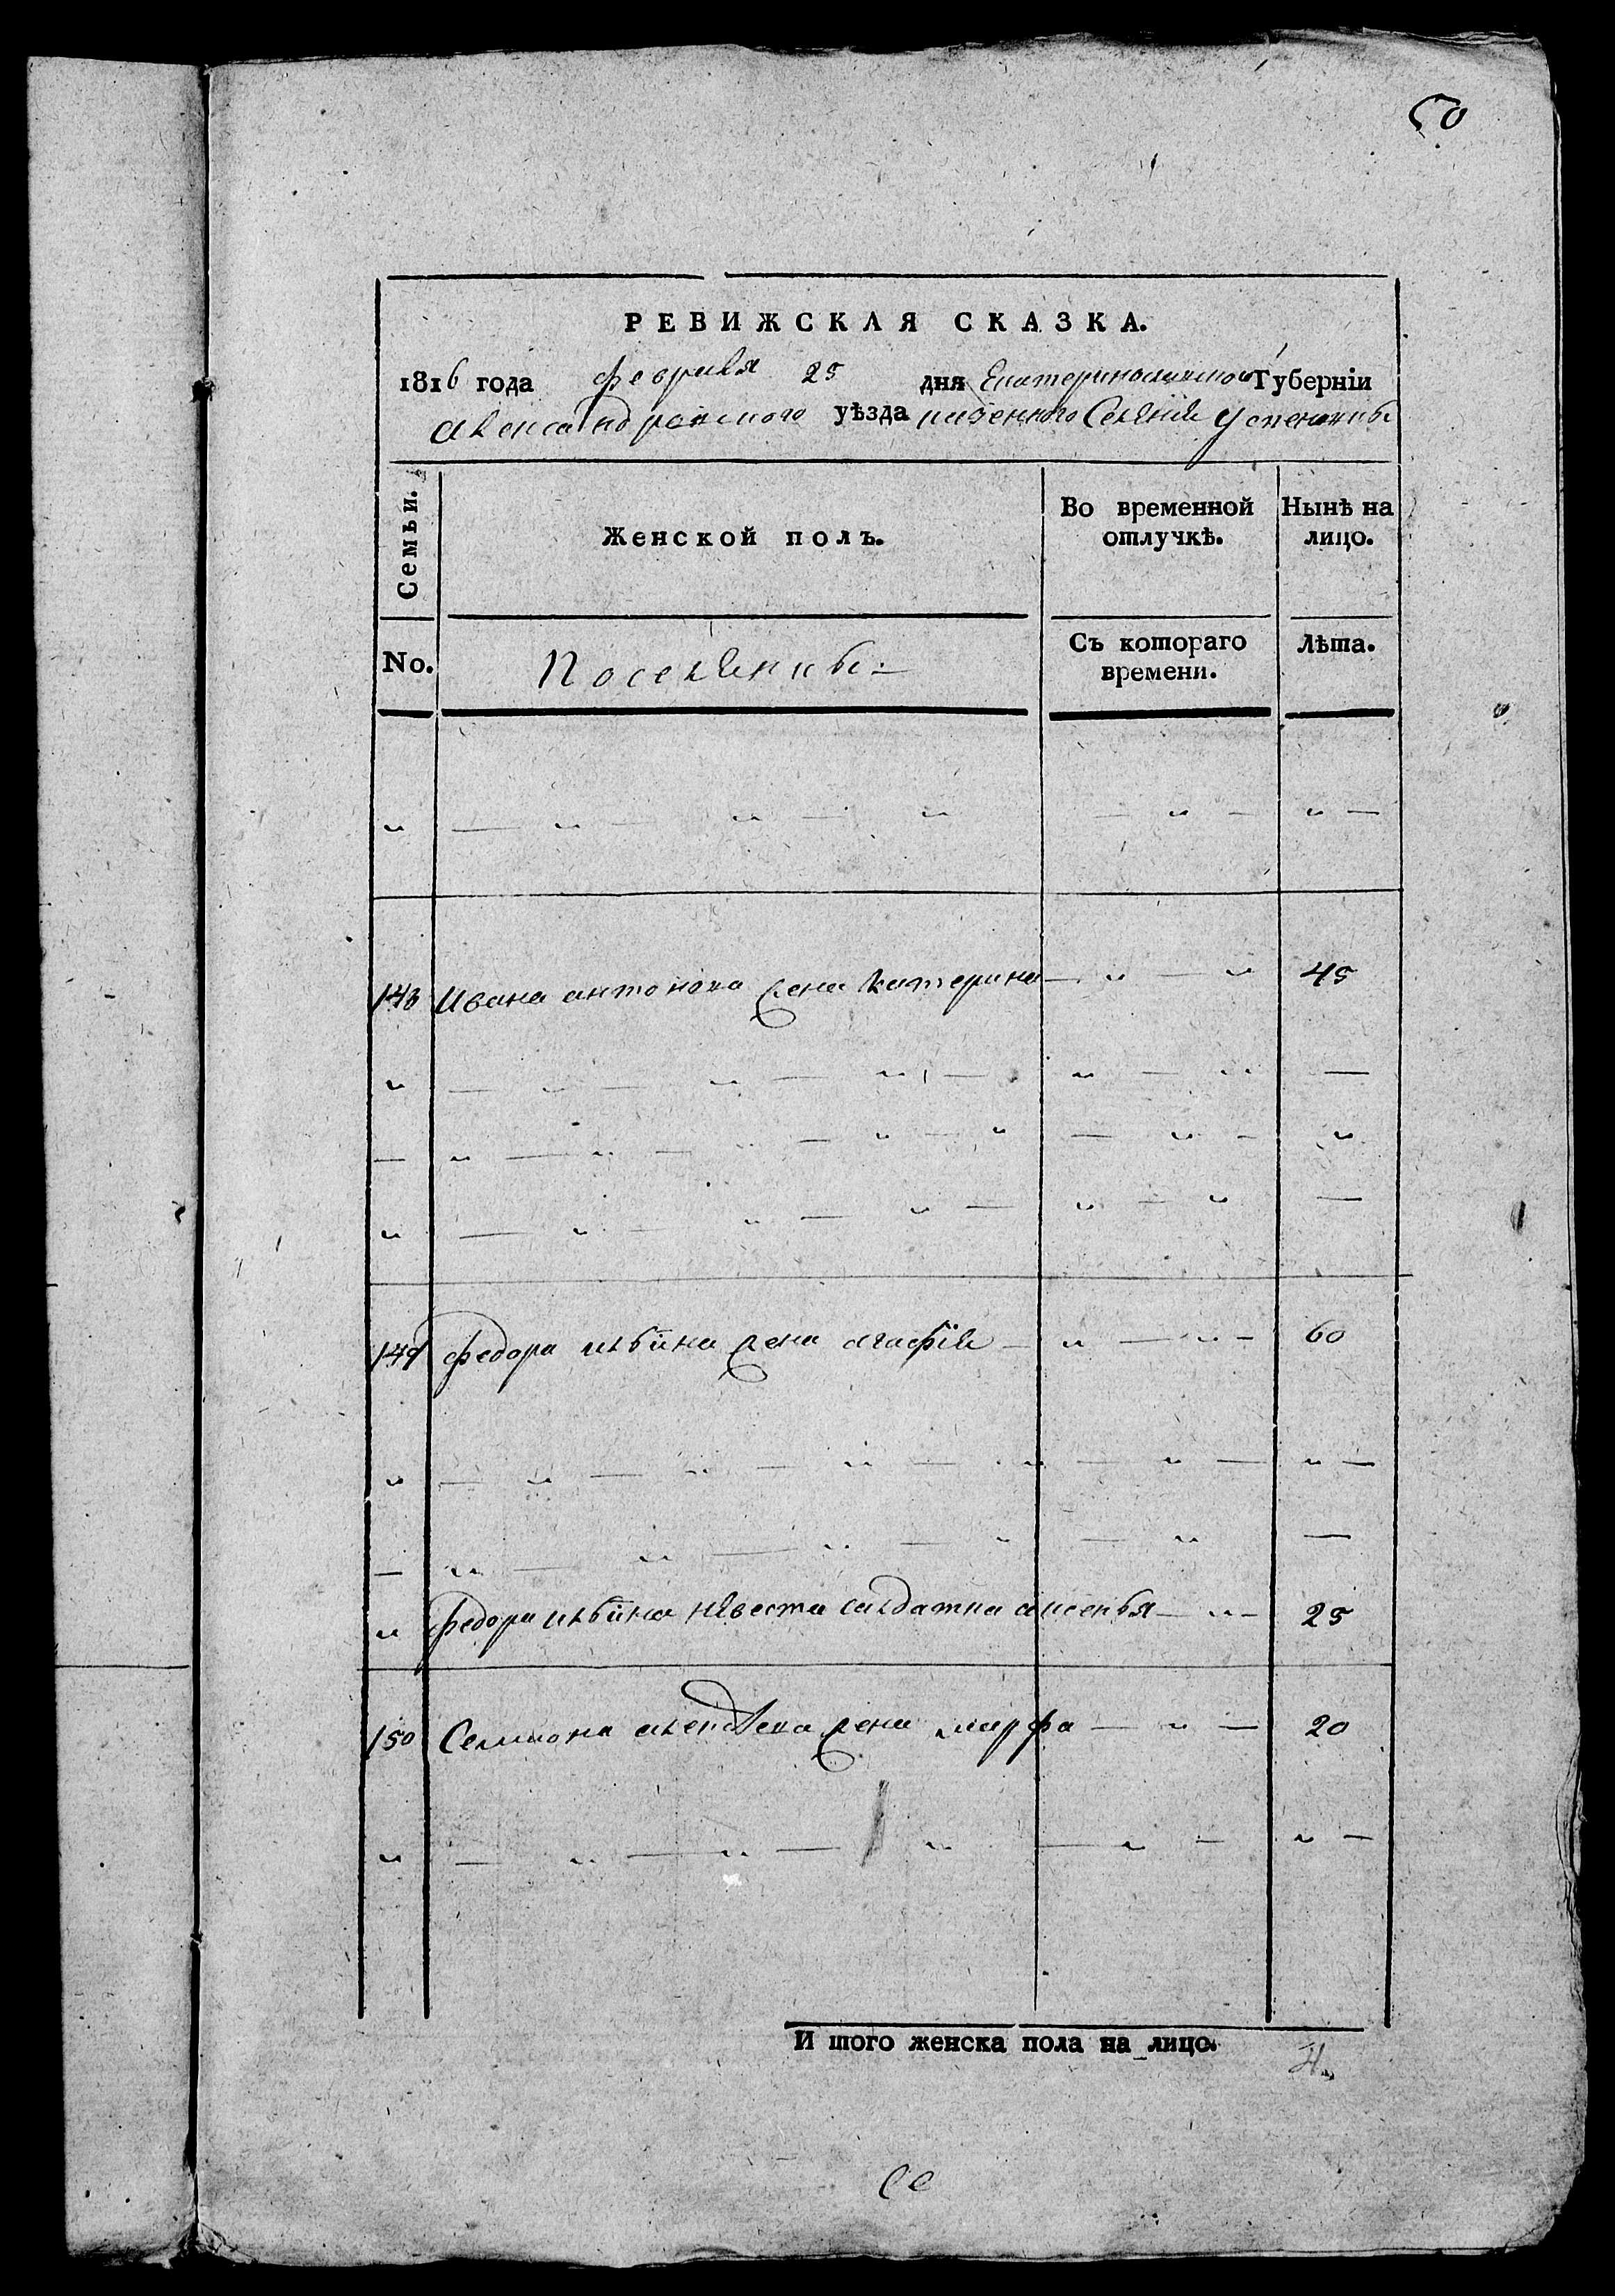 50
РЕВИЖСКАЯ СКАЗКА.
1816 года февраля 25 дня Екатеринославской Губернїи
александровского уѣзда казенного Селения Успеновки
Семьи.
Женской полъ.
Во временной отлучкѣ.
Нынѣ на лицо.
No.
Поселянки
Съ котораго времени.
Лѣта.
148 Ивана антонова жена катерина — „ — „ 45
149 федора ильина жена агафїя — „ — „ — 60
„ федора ильина невестка салдатка аксенья — „ — 25
150 Семиона жена марфа — „ — 20
И того женска пола на лицо. 4.